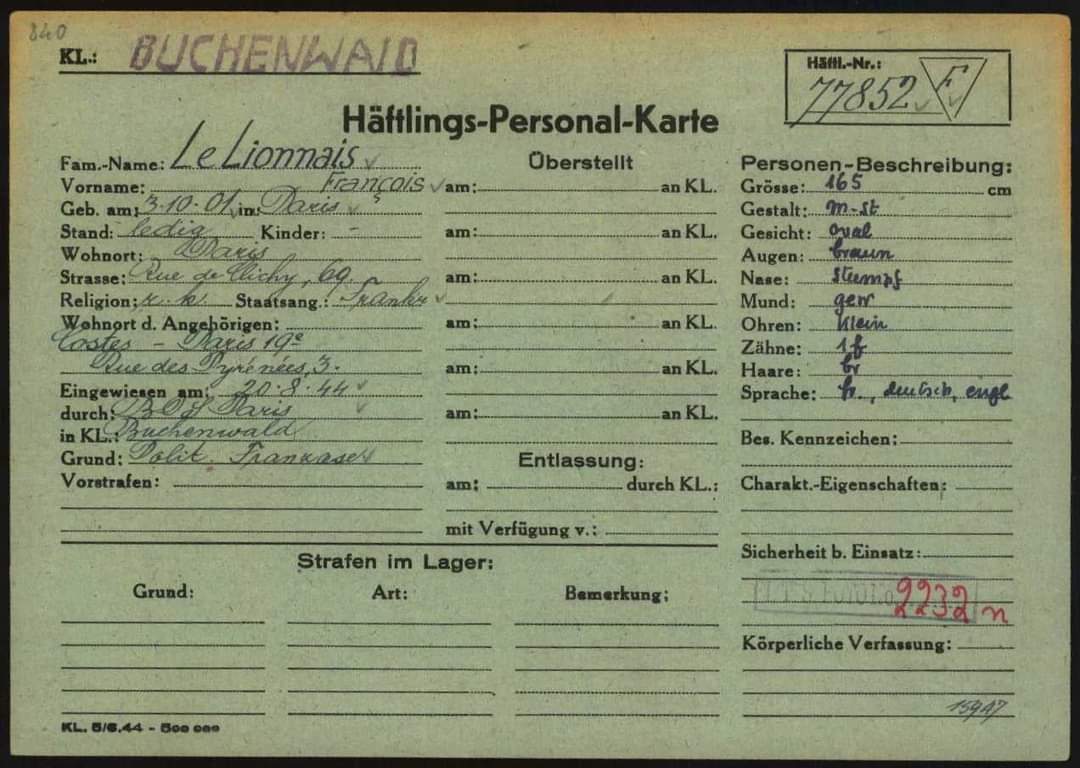 840
KL.: BUCHENWALD
Häftl.-Nr.:
77852 F
Häftlings-Personal-Karte
Fam.-Name: Le Lionnais
Vorname: François
Geb. am: 3.10.01 in: Paris
Stand: ledig Kinder: -
Wohnort: Paris
Strasse: Rue de Clichy, 69.
Religion: r. k. Staatsang.: Frankr
Wohnort d. Angehörigen:
Costes - Paris 19e
Rue des Pyrénées, 3.
Eingewiesen am: 20.8.44
durch: BdS Paris
in KL.: Buchenwald
Grund: Polit. Franzose
Vorstrafen:
Überstellt
am: an KL.
am: an KL.
am: an KL.
am: an KL.
am: an KL.
am: an KL.
Entlassung:
am: durch KL.:
mit Verfügung v.:
Personen-Beschreibung:
Grösse: 165 cm
Gestalt: m-st
Gesicht: oval
Augen: braun
Nase: stumpf
Mund: gew
Ohren: klein
Zähne: 1 f
Haare: br
Sprache: fr., deutsch, engl
Bes. Kennzeichen:
Charakt.-Eigenschaften:
Sicherheit b. Einsatz:
I.T.S. FOTO No 2232 n
Körperliche Verfassung:
Strafen im Lager:
Grund: Art: Bemerkung:
KL. 5/6.44 - 500 000